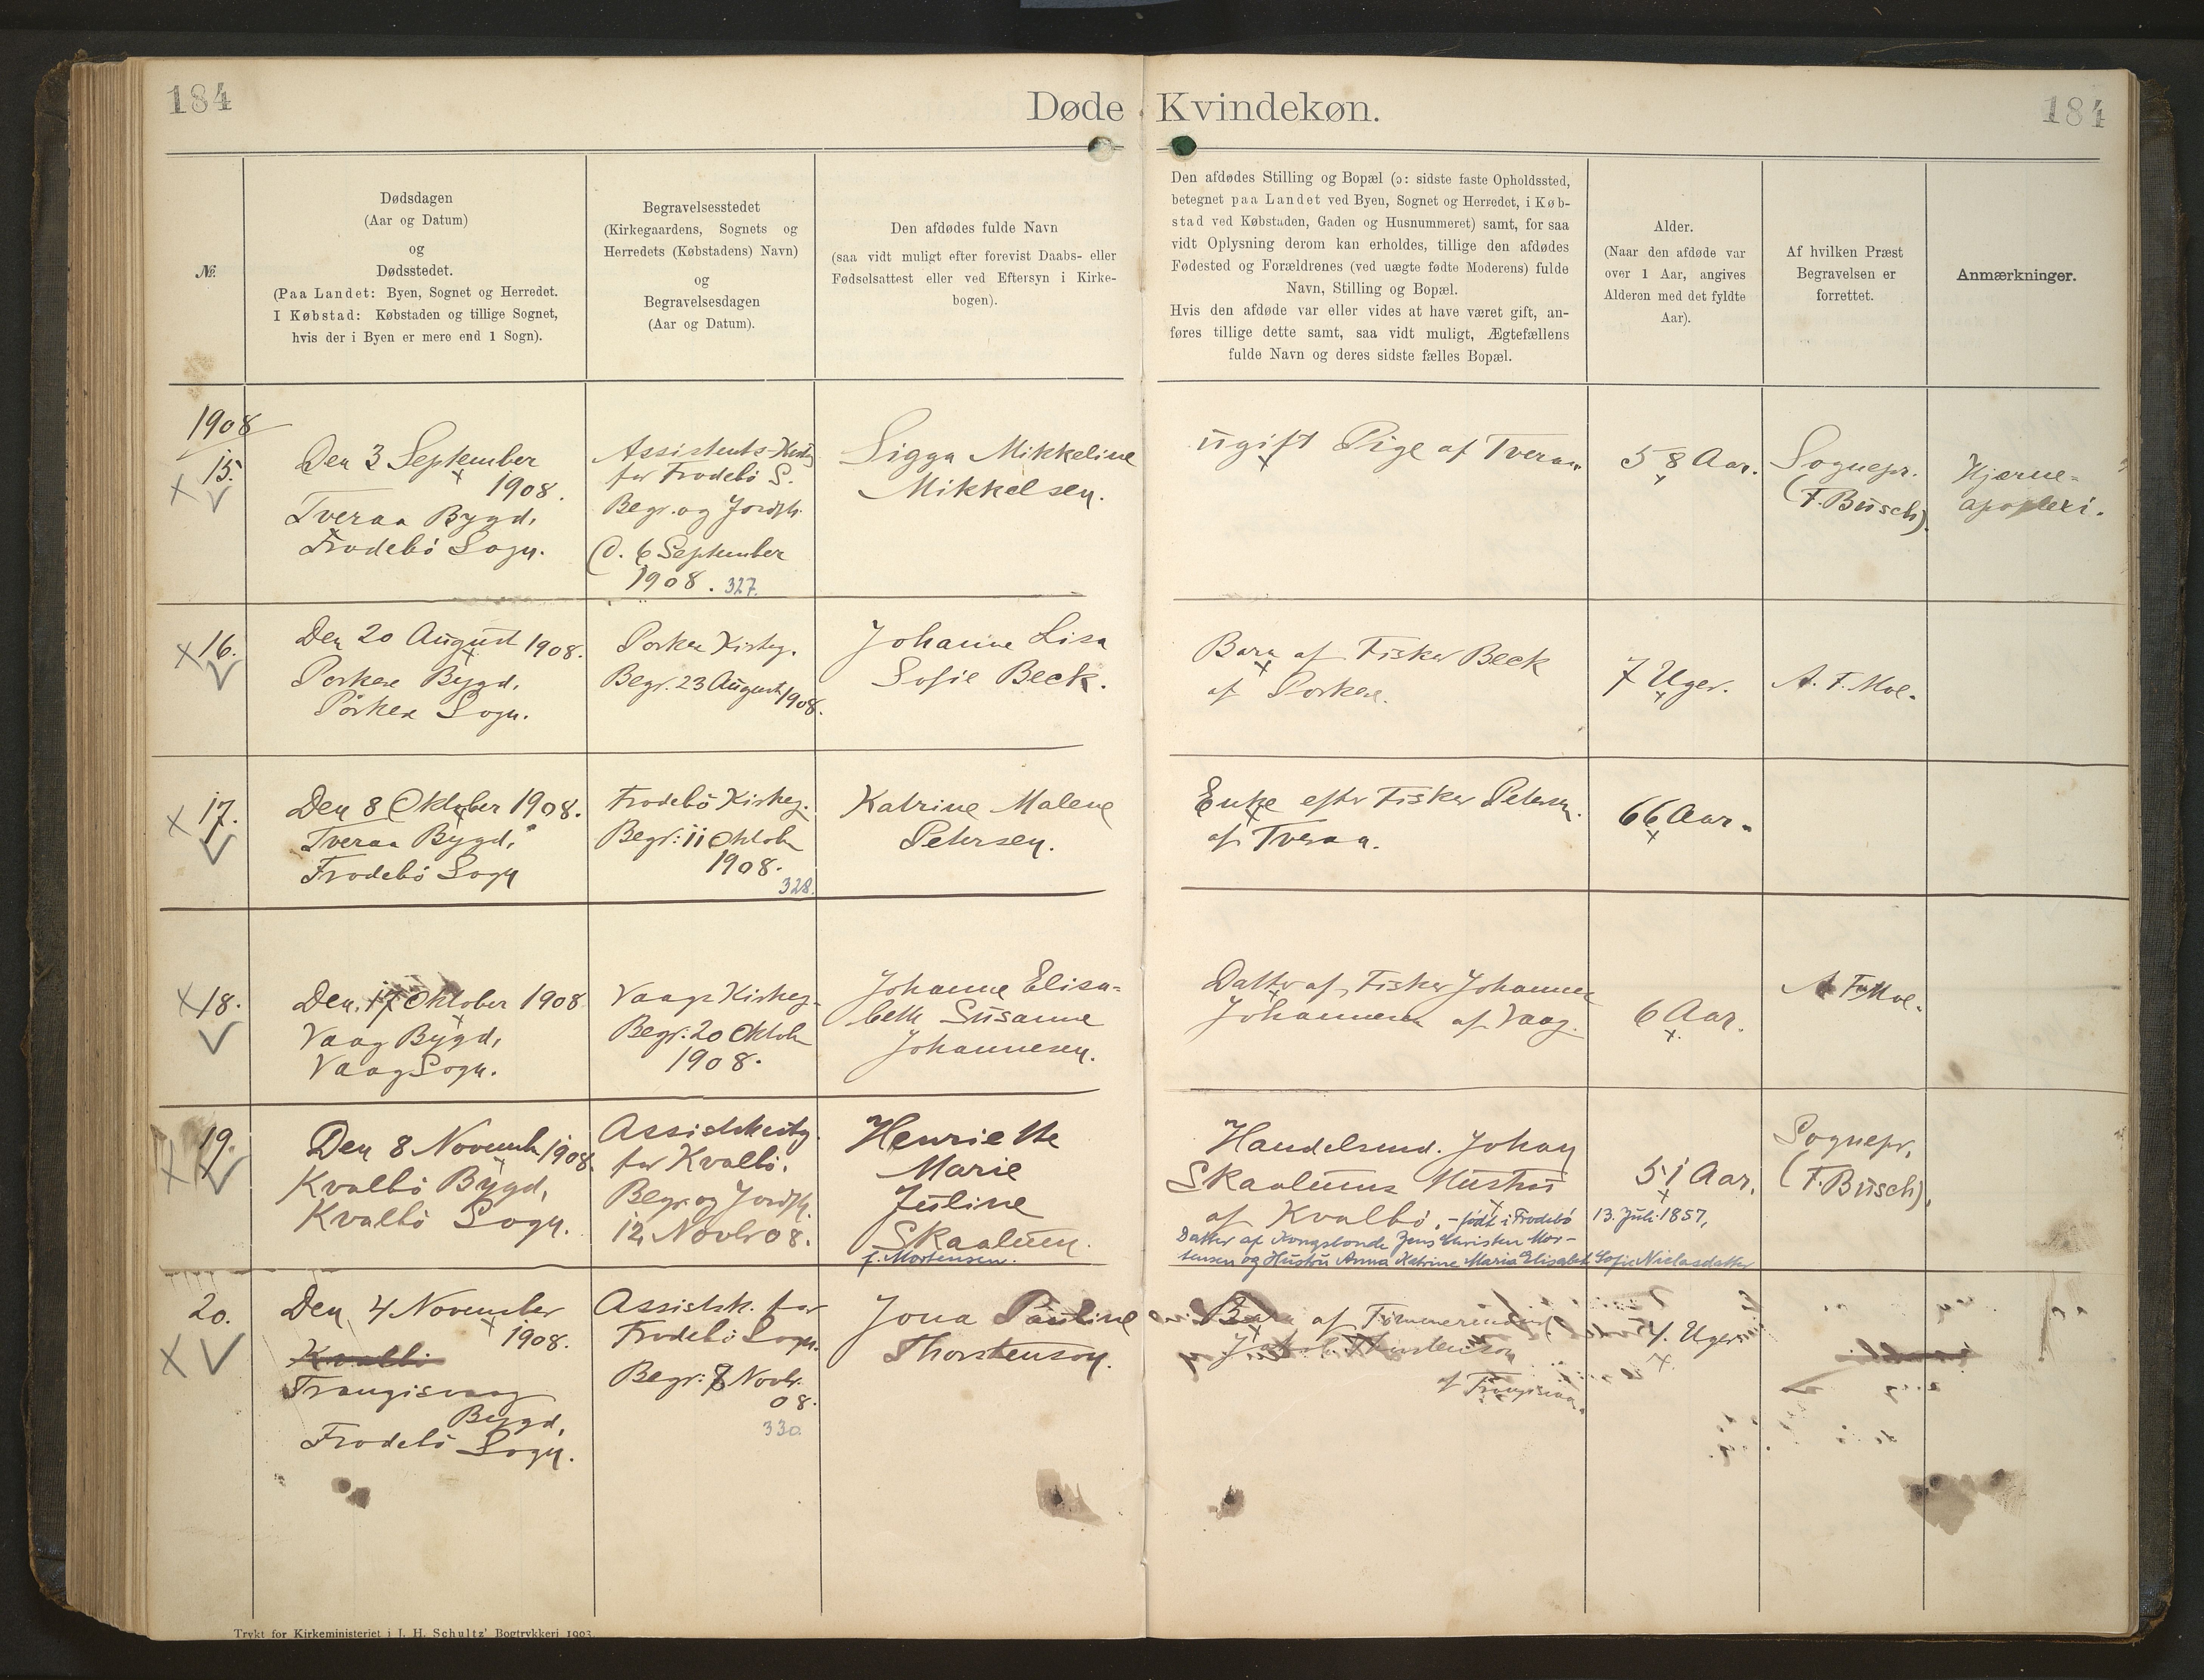 184
Døde Kvindekøn.
184
№
Dødsdagen
(Aar og Datum)
og
Dødsstedet.
(Paa Landet: Byen, Sognet og Herredet.
I Købstad: Købstaden og tillige Sognet,
hvis der i Byen er mere end 1 Sogn).
Begravelsesstedet
(Kirkegaardens, Sognets og
Herredets (Købstadens) Navn)
og
Begravelsesdagen
(Aar og Datum).
Den afdødes fulde Navn
(saa vidt muligt efter forevist Daabs- eller
Fødselsattest eller ved Eftersyn i Kirke-
bogen).
Den afdødes Stilling og Bopæl (ɔ: sidste faste Opholdssted,
betegnet paa Landet ved Byen, Sognet og Herredet, i Køb-
stad ved Købstaden, Gaden og Husnummeret) samt, for saa
vidt Oplysning derom kan erholdes, tillige den afdødes
Fødested og Forældrenes (ved uægte fødte Moderens) fulde
Navn, Stilling og Bopæl.
Hvis den afdøde var eller vides at have været gift, an-
føres tillige dette samt, saa vidt muligt, Ægtefællens
fulde Navn og deres sidste fælles Bopæl.
Alder.
(Naar den afdøde var
over 1 Aar, angives
Alderen med det fyldte
Aar).
Af hvilken Præst
Begravelsen er
forrettet.
Anmærkninger.
1908
15.
Den 3 September
1908.
Tveraa Bygd,
Frodebö Sogn.
Assistents-Kirkg
for Frodebö S.
Begr. og Jordfk.
d. 6 September
1908. 327.
Sigga Mikkeline
Mikkelsen.
ugift Pige af Tveraa.
58 Aar.
Sognepr.
(F. Busch).
Hjerne-
apoplexi.
16.
Den 20 August 1908.
Porkere Bygd,
Porkere Sogn.
Porkere Kirkeg.
Begr. 23 August 1908.
Johanne Lisa
Sofie Beck.
Barn af Fisker Beck
af Porkere.
7 Uger.
A. F. Moe.
17.
Den 8 Oktober 1908.
Tveraa Bygd,
Frodebö Sogn
Frodebö Kirkeg.
Begr: 11 Oktober
1908.
328.
Katrine Malene
Petersen.
Enke efter Fisker Petersen
af Tveraa.
66 Aar.
18.
Den 17 Oktober 1908
Vaag Bygd,
Vaag Sogn.
Vaags Kirkeg.
Begr: 20 Oktober
1908.
Johanne Elisa-
beth Susanne
Johannesen.
Datter af Fisker Johannes
Johannesen af Vaag.
6 Aar.
A. F. Moe.
19.
Den 8 Novemb. 1908
Kvalbö Bygd,
Kvalbö Sogn.
Assistkirkg.
for Kvalbö.
Begr. og Jordfk.
12. Novbr 08.
Henriette
Marie
Juline
Skaalum.
f. Mortensen.
Handelsmd. Johan
Skaalums Hustru
af Kvalbö. - født i Frodebö
Datter af Kongsbonde Jens Christen Mor-
tensen og Hustru Anna Katrine Maria Elisabet Sofie Nielasdatter
51 Aar.
13. Juli 1857,
Sognepr.
(F. Busch).
20.
Den 4 November
1908.
Kvalbö
Trangisvaag
Bygd,
Frodebö Sogn.
Assistsk. for
Frodebö Sogn.
Begr: 8 Novbr.
08.
330
Jona Pauline
Thorstenson.
Barn af Tömmermand
Thorstenson
af Trangisvaag.
4. Uger
Trykt for Kirkeministeriet i J. H. Schultz' Bogtrykkeri 1903.